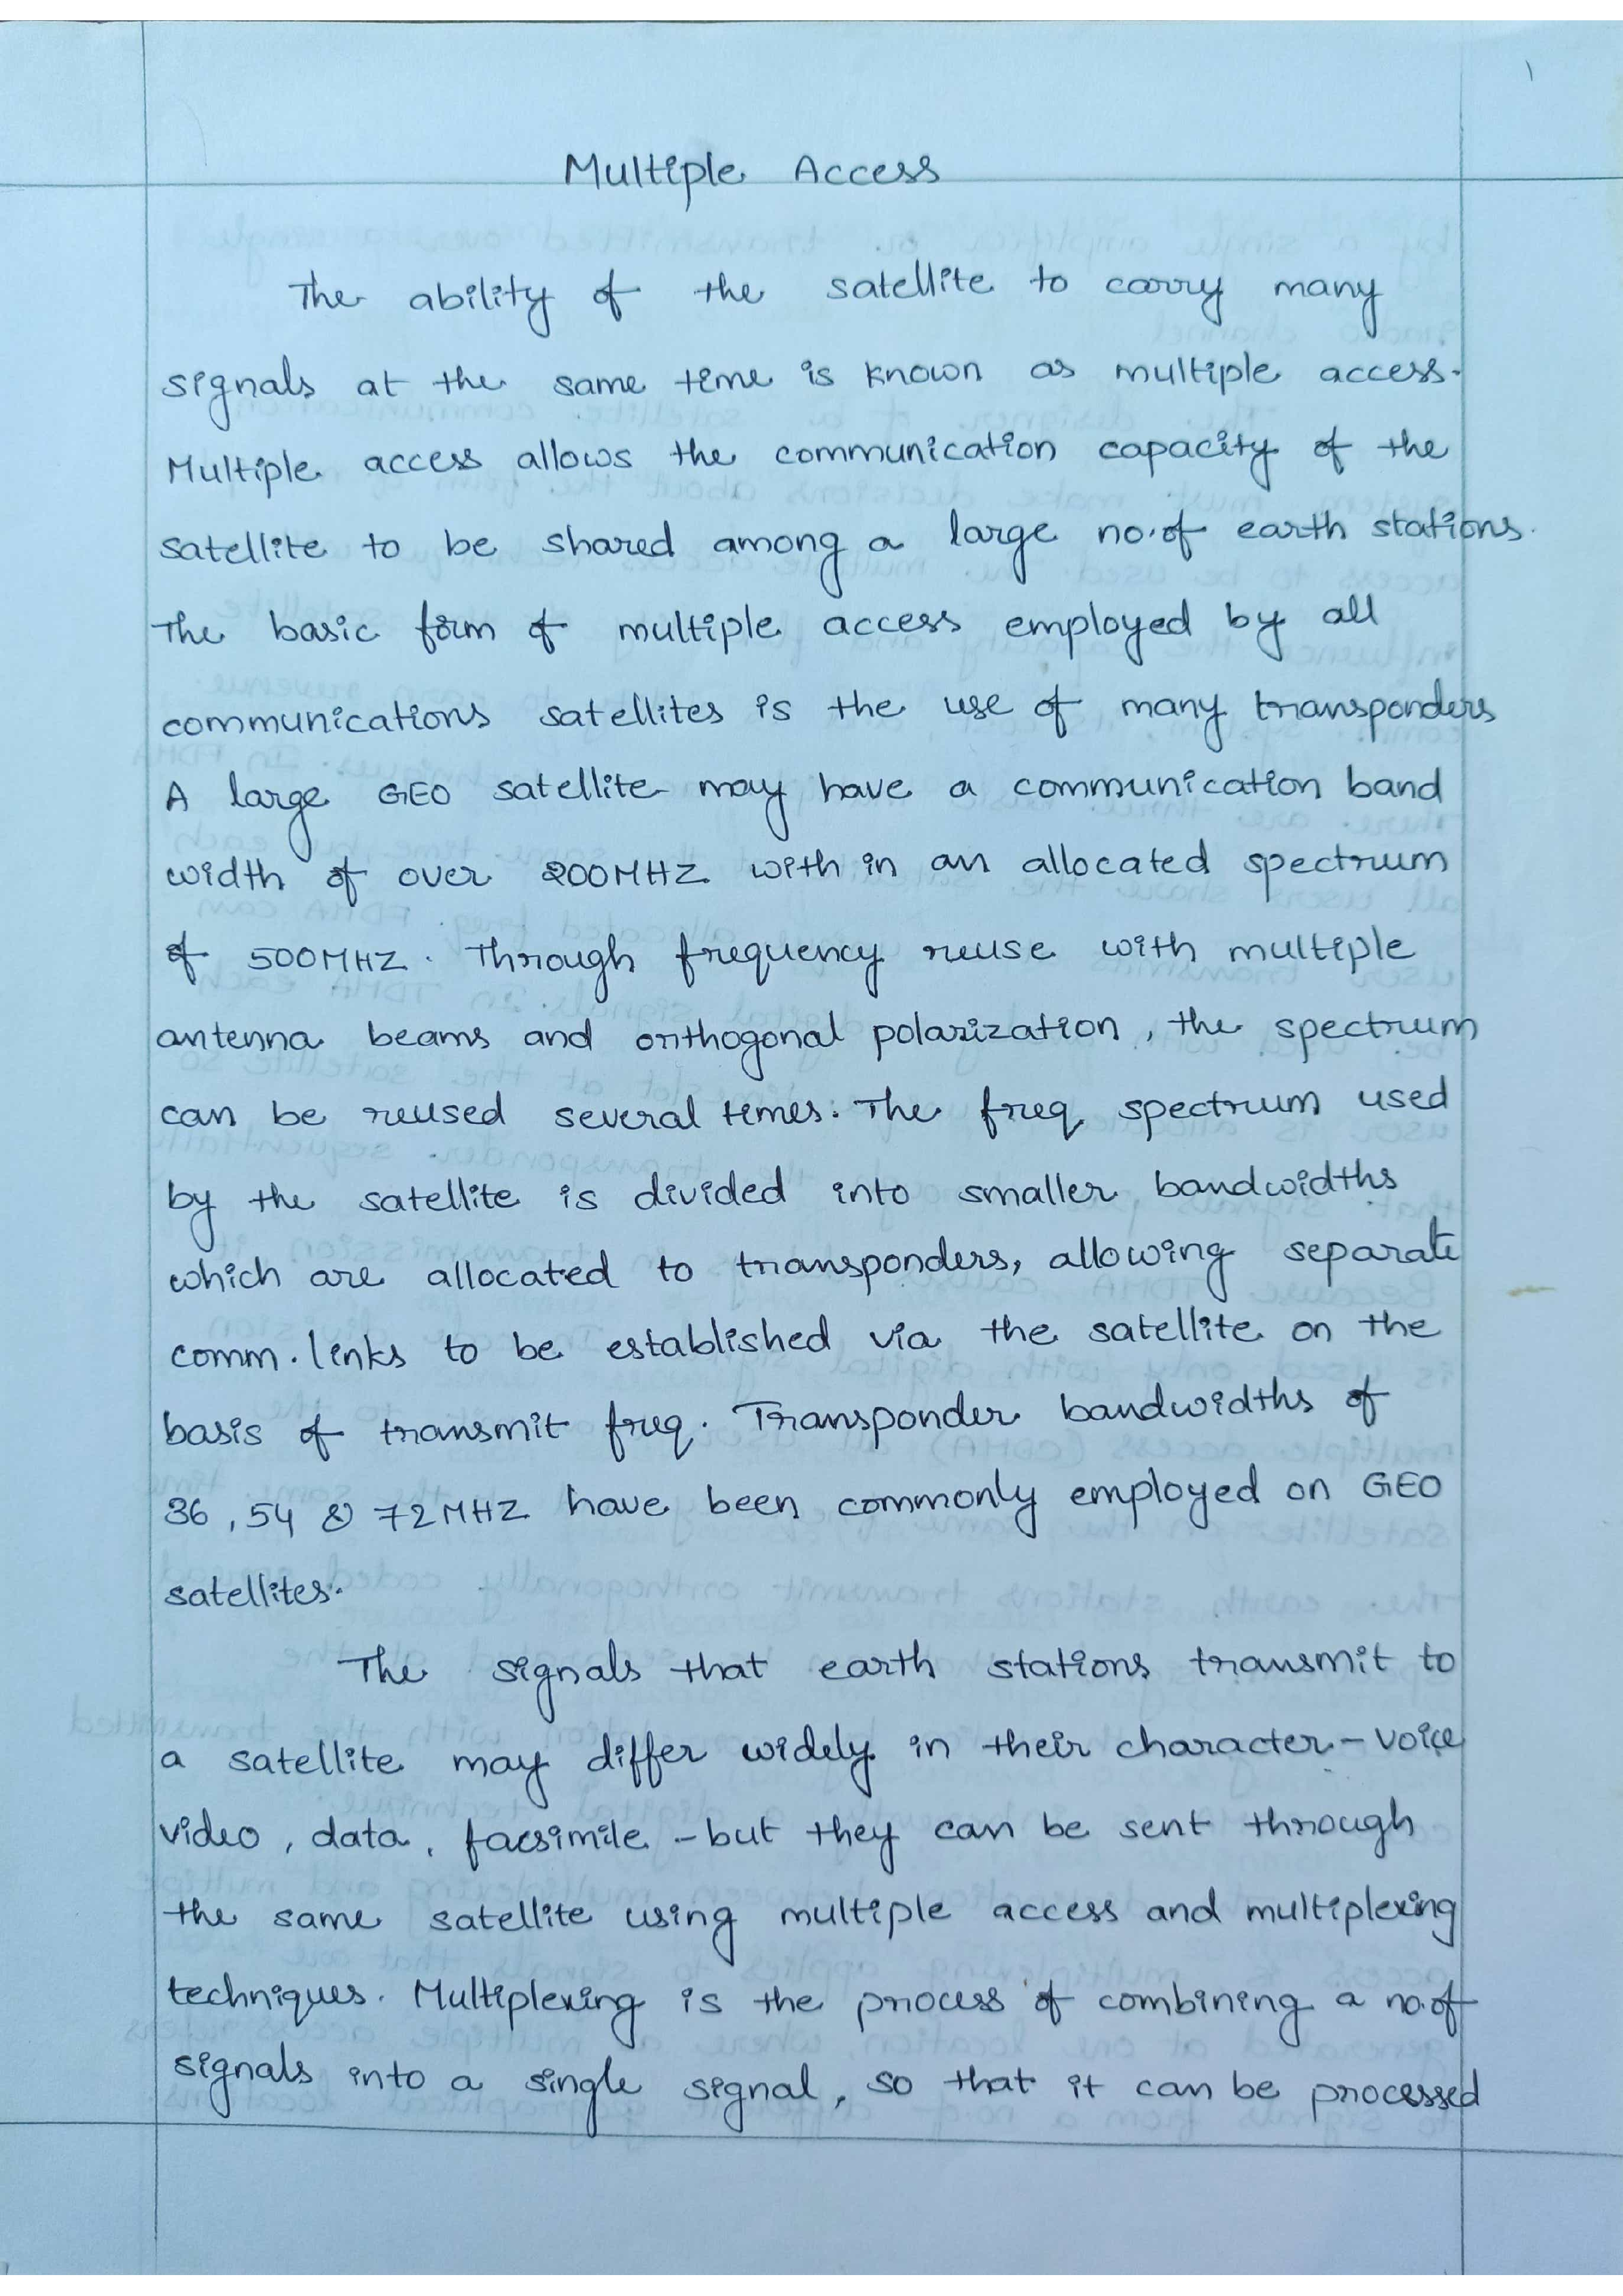 1
Multiple Access
The ability of the satellite to carry many
signals at the same time is known as multiple access.
Multiple access allows the communication capacity of the
satellite to be shared among a large no.of earth stations.
The basic form of multiple access employed by all
communications satellites is the use of many transponders
A large GEO satellite may have a communication band
width of over 200MHZ with in an allocated spectrum
of 500MHZ. Through frequency reuse with multiple
antenna beams and orthogonal polarization, the spectrum
can be reused several times. The freq. spectrum used
by the satellite is divided into smaller bandwidths
which are allocated to transponders, allowing separate
comm. links to be established via the satellite on the
basis of transmit freq. Transponder bandwidths of
36, 54 & 72MHZ have been commonly employed on GEO
satellites.
The signals that earth stations transmit to
a satellite may differ widely in their character - voice
video, data, facsimile - but they can be sent through
the same satellite using multiple access and multiplexing
techniques. Multiplexing is the process of combining a no.of
signals into a single signal, so that it can be processed